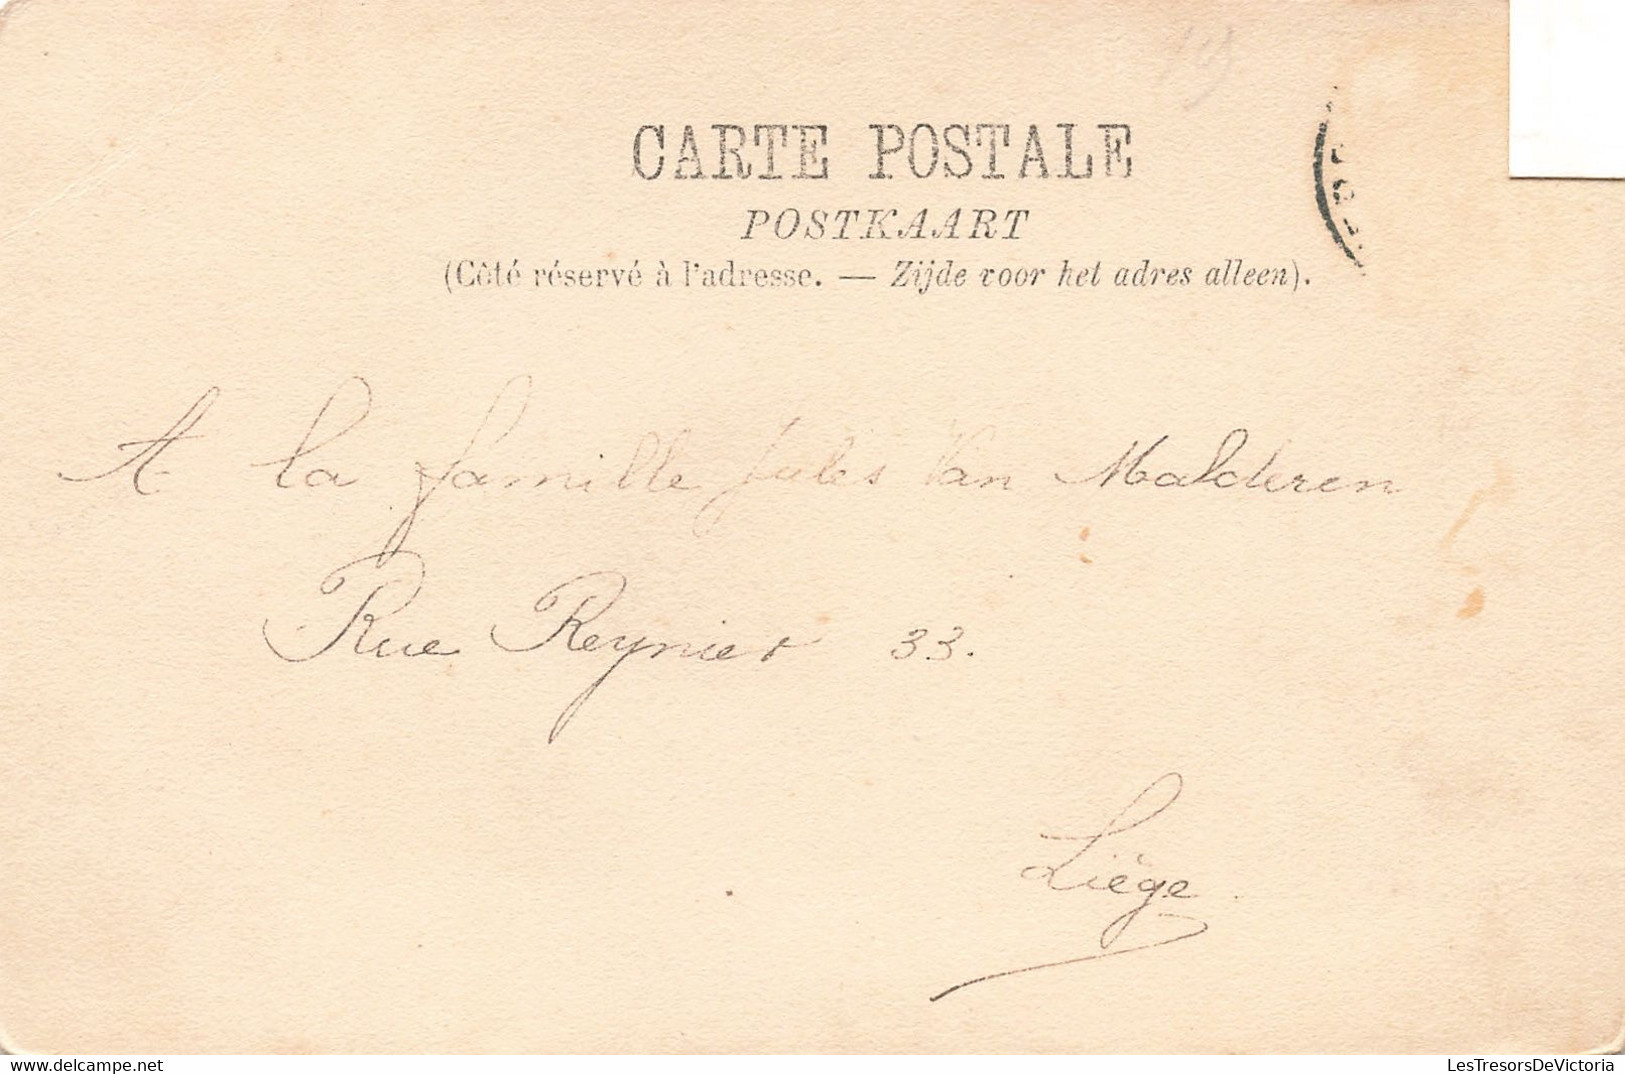 CARTE POSTALE
POSTKAART
(Côté réservé à l'adresse. — Zijde voor het adres alleen).
A la famille Jules Van Malderen
Rue Reynier 33.
Liège.
LesTresorsDeVictoria